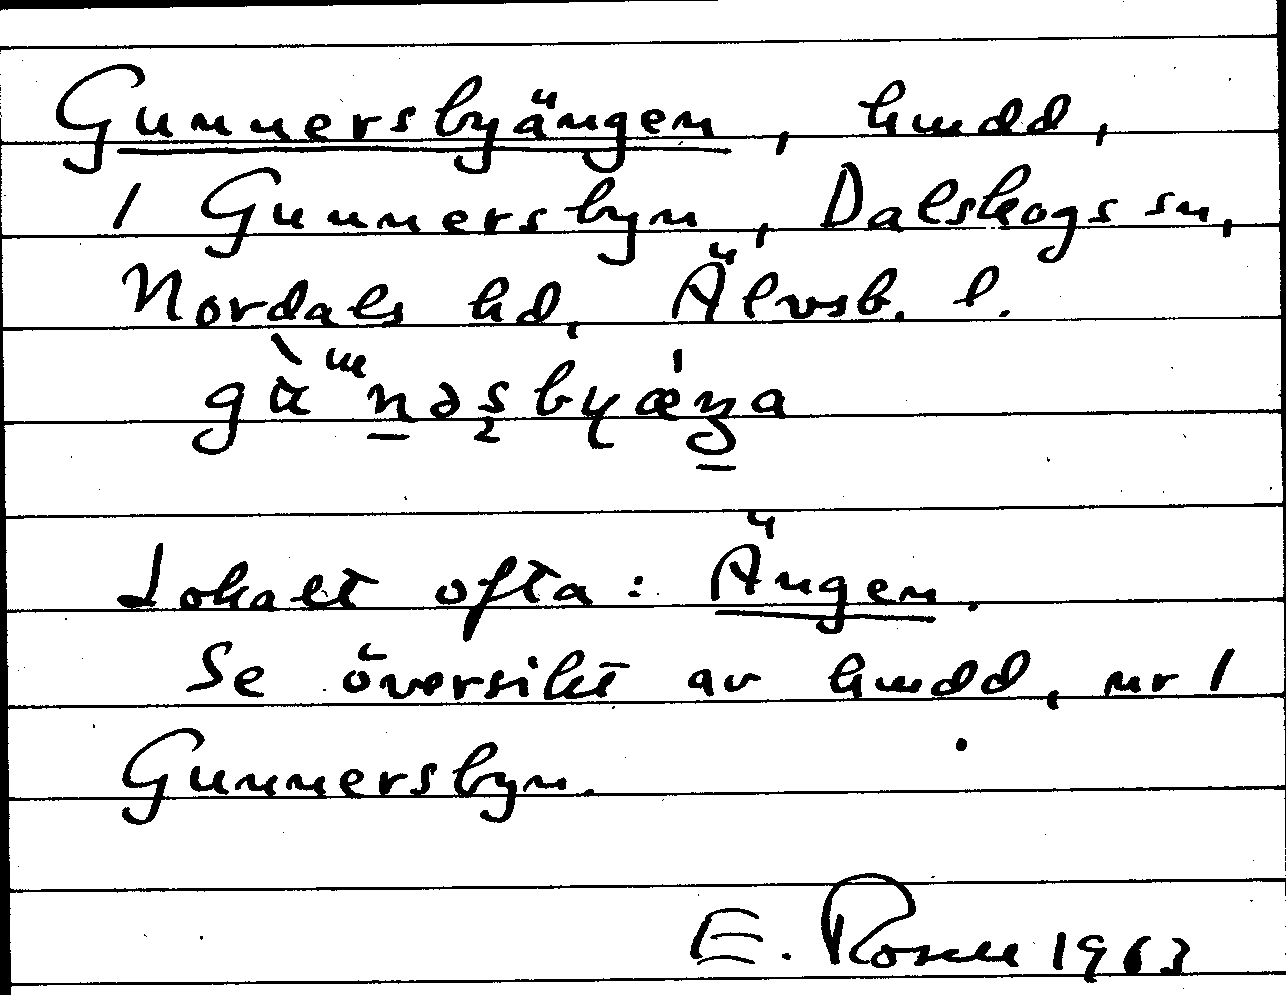 Gunnersbyängen, hmdd,
1 Gunnersbyn, Dalskogs sn,
Nordals hd, Älvsb. l.
Lokalt ofta: Ängen.
Se översikt av hmdd, nr 1
Gunnersbyn.
E. Rosell 1963